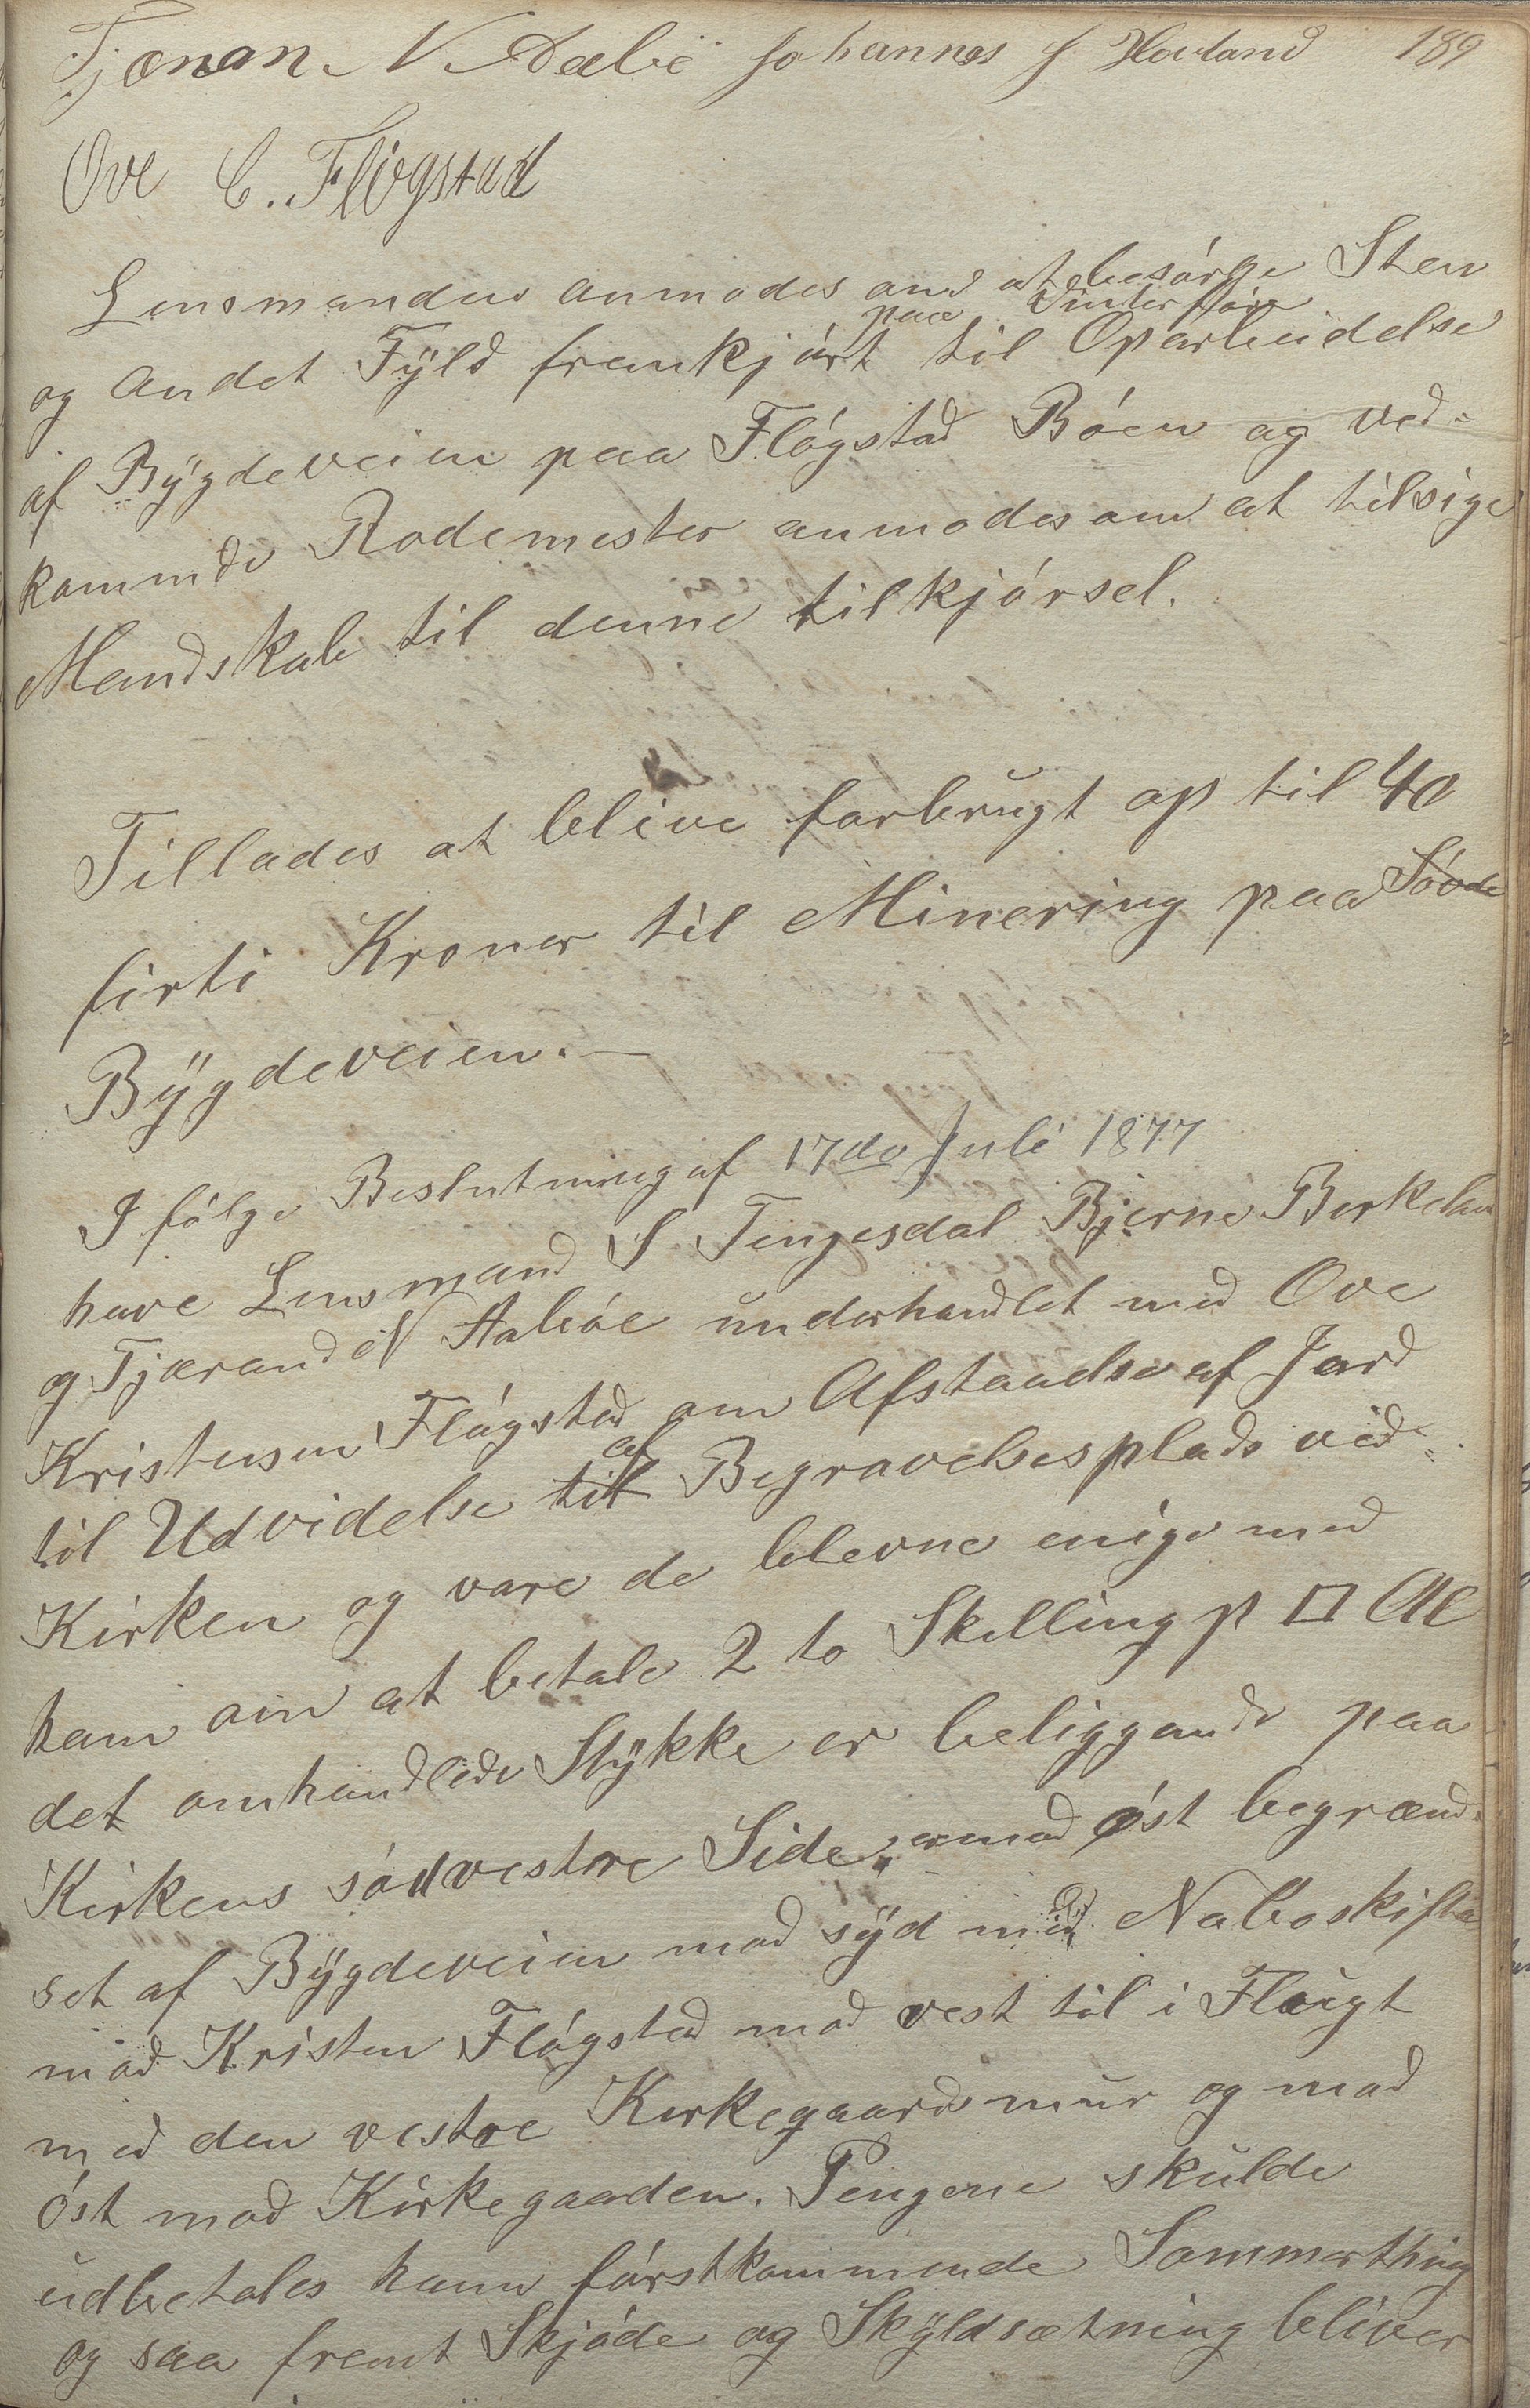 Tjæran N Aabö Johannes J. Hovland 189
Ove C. Flögstad
Lensmanden anmodes om at besörge Sten
og andet Fyld fremkjört paa Vinterföre til Oparbeidelse
af Bygdeveien paa Flögstad Böen og ved-
kommde Rodemester anmodes om at tilsige
Mandskab til denne tilkjörsel.
Tillades at blive forbrugt op til 40
firti Kroner til Minering paa Sövde
Bygdeveien. —
I fölge Beslutning af 17de Juli 1877
have Lensmand S Tengesdal Bjerne Birkeha
og Tjærand N Aaböe underhandlet med Ove
Kristensen Flögstad om Afstaadse af Jord
til Udvidelse til af Begravelsesplads ved
Kirken og vare de blevne enige med
ham om at betale 2 to Skilling p □ Al
det omhandlede Stykke er beliggende paa
Kirkens södvestre Side, er mod öst begrænd-
set af Bygdeveien mod syd med Naboskifte
mod Kristen Flögstad mod vest til i Flugt
med den vestre Kirkegaardsmur og mod
öst mod Kirkegaaden. Pengene skulde
udbetales ham förstkommende Sommerthing
og saa fremt Skjöde og Skyldsætning bliver